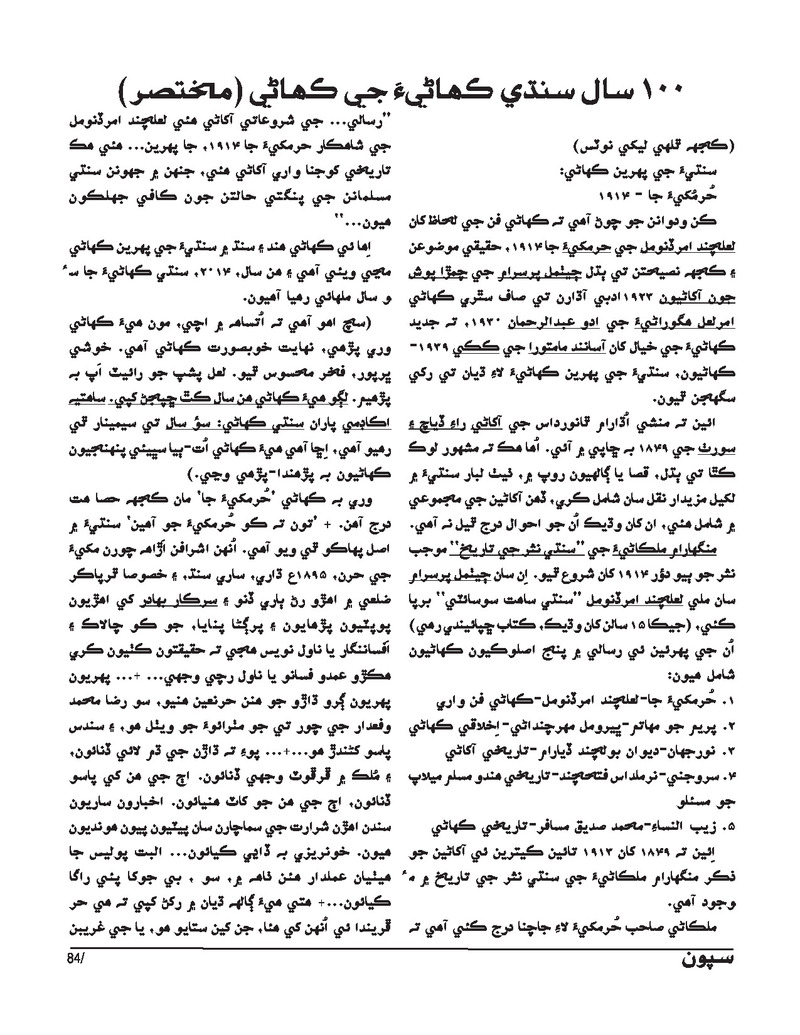 ۱۰۰ سال سنڌي ڪهاڻيءَ جي ڪهاڻي (مختصر)
(ڪجهہ ڦلهي ليکي نوٽس)
سنڌيءَ جي پهرين ڪهاڻي:
حُرمُکيءَ جا - ۱۹۱۴
ڪن ودوانن جو چوڻ آهي تہ ڪهاڻي فن جي لحاظ کان
لعلچند امرڏنومل جي حرمکيءَ جا ۱۹۱۴، حقيقي موضوعن
۽ ڪجهہ نصيحتن تي ٻڌل جيٺمل پرسرام جي چمڙا پوش
جون آکاڻيون ۱۹۲۳ ادبي آڌارن تي صاف سٿري ڪهاڻي
امرلعل هڱوراڻيءَ جي ادو عبدالرحمان ۱۹۳۰، تہ جديد
ڪهاڻيءَ جي خيال کان آسانند مامتورا جي ڪڪي ۱۹۳۹-
ڪهاڻيون، سنڌيءَ جي پهرين ڪهاڻيءَ لاءِ ڌيان تي رکي
سگهجن ٿيون.
ائين تہ منشي اُڌارام ٿانورداس جي آکاڻي راءِ ڏياچ ۽
سورٺ جي ۱۸۴۹ ۾ ڇاپي ۾ آئي. اُها هڪ تہ مشهور لوڪ
ڪٿا تي ٻڌل، قصا يا ڳالهيون روپ ۾، ٺيٺ لبار سنڌيءَ ۾
لکيل مزيدار نقل سان شامل ڪري، ڏهن آکاڻين جي مجموعي
۾ شامل هئي، ان کان وڌيڪ اُن جو احوال درج ٿيل نہ آهي.
منگهارام ملڪاڻيءَ جي ”سنڌي نثر جي تاريخ“ موجب
نثر جو ٻيو دؤر ۱۹۱۴ کان شروع ٿيو. اِن سان جيٺمل پرسرام
سان ملي لعلچند امرڏنومل ”سنڌي ساهت سوسائٽي“ برپا
ڪئي، (جيڪا ۱۵ سالن کان وڌيڪ، ڪتاب ڇپائيندي رهي)
اُن جي پهرئين ئي رسالي ۾ پنج اصلوڪيون ڪهاڻيون
شامل هيون:
۱. حُرمکيءَ جا-لعلچند امرڏنومل-ڪهاڻي فن واري
۲. پريم جو مهاتم-ڀيرومل مهرچنداڻي-اِخلاقي ڪهاڻي
۳. نورجهان-ديوان ٻولچند ڏيارام-تاريخي آکاڻي
۴. سروجني-نرملداس فتحچند-تاريخي هندو مسلم ميلاپ
جو مسئلو
۵. زيب النساءِ-محمد صديق مسافر-تاريخي ڪهاڻي
اِئين تہ ۱۸۴۹ کان ۱۹۱۳ تائين ڪيترين ئي آکاڻين جو
ذڪر منگهارام ملڪاڻيءَ جي سنڌي نثر جي تاريخ ۾ مو
وجود آهي.
ملڪاڻي صاحب حُرمکيءَ لاءِ جاچنا درج ڪئي آهي تہ
”رسالي... جي شروعاتي آکاڻي هئي لعلچند امرڏنومل
جي شاهڪار حرمکيءَ جا ۱۹۱۴، جا پهرين... هئي هڪ
تاريخي کوجنا واري آکاڻي هئي، جنهن ۾ جهونن سنڌي
مسلمانن جي پنگتي حالتن جون ڪافي جهلڪون
هيون...“
اِها ئي ڪهاڻي هند ۽ سنڌ ۾ سنڌيءَ جي پهرين ڪهاڻي
مڃي ويئي آهي ۽ هن سال، ۲۰۱۴، سنڌي ڪهاڻيءَ جا سؤ
و سال ملهائي رهيا آهيون.
(سچ اهو آهي تہ اُتساهہ ۾ اچي، مون هيءَ ڪهاڻي
وري پڙهي، نهايت خوبصورت ڪهاڻي آهي. خوشي
ڀرپور، فخر محسوس ٿيو. لعل پشپ جو رائيٽ اَپ بہ
پڙهيم. لڳو هيءَ ڪهاڻي هن سال ڪٿ ڇپجڻ کپي. ساهتيہ
اڪاڊمي پاران سنڌي ڪهاڻي: سؤ سال تي سيمينار ٿي
رهيو آهي، اِڇا آهي هيءَ ڪهاڻي اُت-ٻيا سڀيئي پنهنجيون
ڪهاڻيون بہ پڙهندا-پڙهي وڃي.)
وري بہ ڪهاڻي ’حُرمکيءَ جا‘ مان ڪجهہ حصا هت
درج آهن. + ’تون تہ ڪو حُرمکيءَ جو آهين‘ سنڌيءَ ۾
اصل پهاڪو ٿي ويو آهي. اُنهن اشرافن اَڙاهہ چورن مکيءَ
جي حرن، ۱۸۹۵ع ڌاري، ساري سنڌ، ۽ خصوصا ٿرپاڪر
ضلعي ۾ اهڙو رڻ ٻاري ڏنو ۽ سرڪار بهادر کي اهڙيون
پوپٽيون پڙهايون ۽ پرڳڻا پنايا، جو ڪو چالاڪ ۽
اَفسانگار يا ناول نويس هجي تہ حقيقتون ڪٺيون ڪري
هڪڙو عمدو فسانو يا ناول رچي وجهي... +... پهريون
پهريون ڳرو ڌاڙو جو هنن حرنعين هنيو، سو رضا محمد
وفعدار جي چور تي جو مٽرائوءَ جو ويٺل هو، ۽ سندس
پاسو کڻندڙ هو...+... پوءِ تہ ڌاڙن جي ڌم لائي ڏنائون،
۽ مُلڪ ۾ ڦرڦوٽ وجهي ڏنائون. اڄ جي هن کي پاسو
ڏنائون، اڄ جي هن جو کاٽ هنيائون. اخبارون ساريون
سندن اهڙن شرارت جي سماچارن سان پيٽيون پيون هونديون
هيون. خونريزي بہ ڏاڍي ڪيائون... البت پوليس جا
هيٺيان عملدار هئن ٺاهہ ۾، سو ، ٻي جوکا پئي راڳا
ڪيائون...+ هتي هيءَ ڳالهہ ڌيان ۾ رکڻ کپي تہ هي حر
ڦريندا ئي اُنهن کي هئا، جن کين ستايو هو، يا جي غريبن
84/
سپون